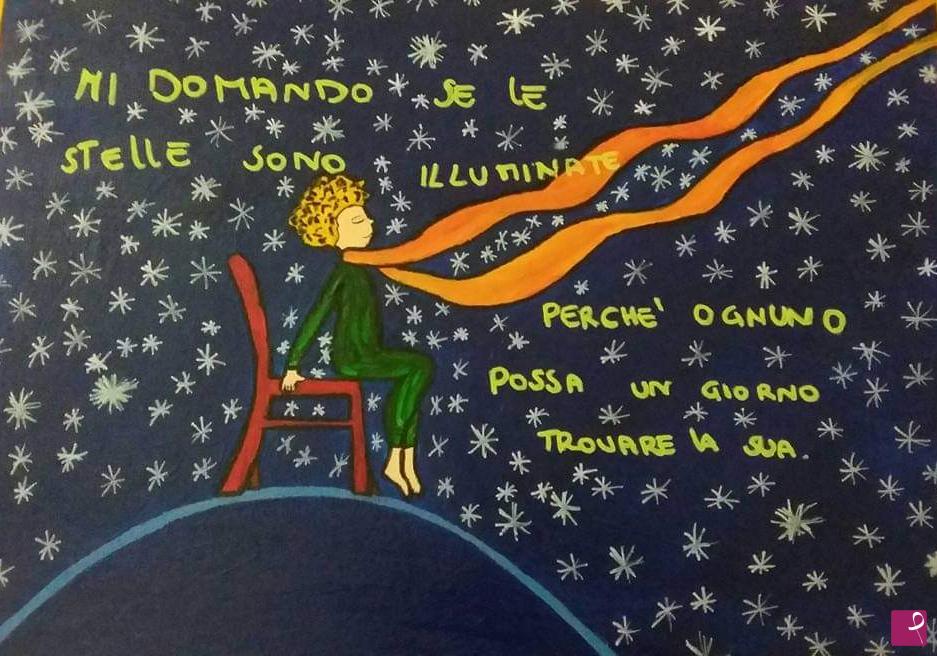 MI DOMANDO SE LE
STELLE SONO ILLUMINATE
PERCHE' OGNUNO
POSSA UN GIORNO
TROVARE LA SUA.